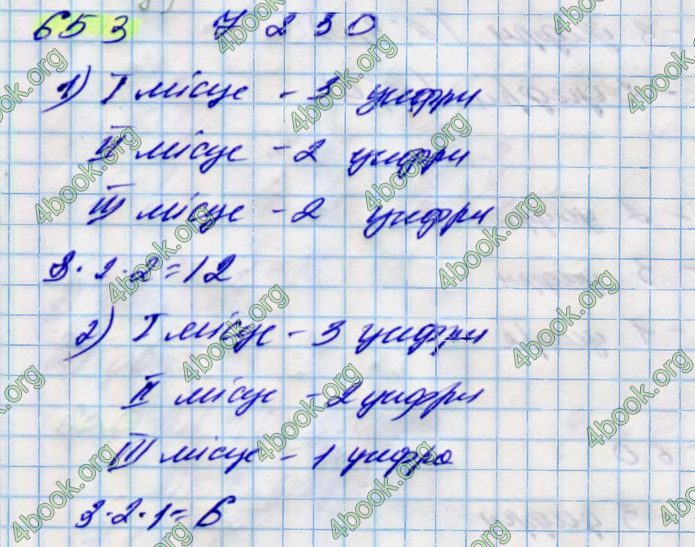 653   7 2 3 0
1) I місце - 3 цифри
II місце - 2 цифри
III місце - 2 цифри
3·2·2=12
2) I місце - 3 цифри
II місце - 2 цифри
III місце - 1 цифра
3·2·1=6
4book.org